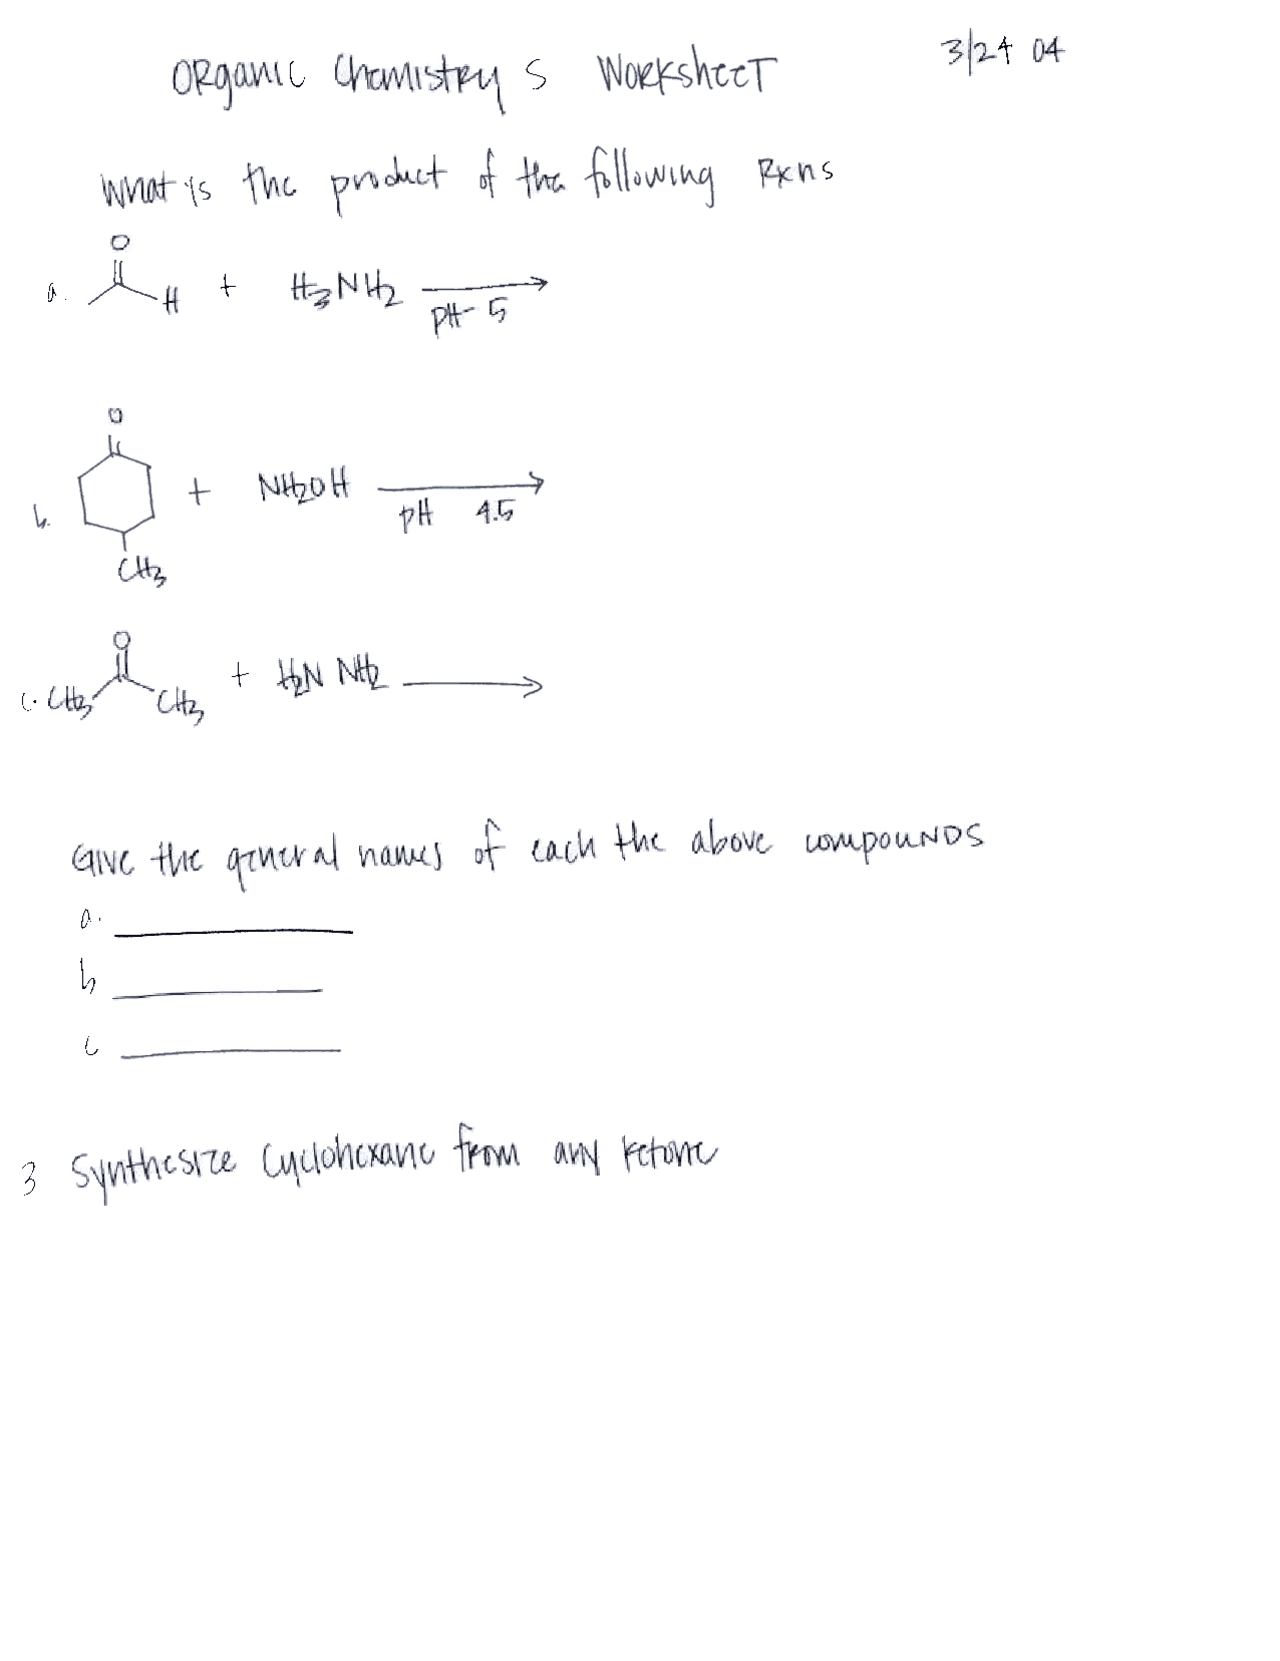 Organic Chemistry S Worksheet 3/24 04
What is the product of the following Rxns
O
a. H + H3NH2
pH 5
O
b. + NH2OH
pH 4.5
CH3
O
c. CH3 CH3 + H2N NH2
Give the general names of each the above compounds
a.
b
c
3 Synthesize Cyclohexane from any ketone